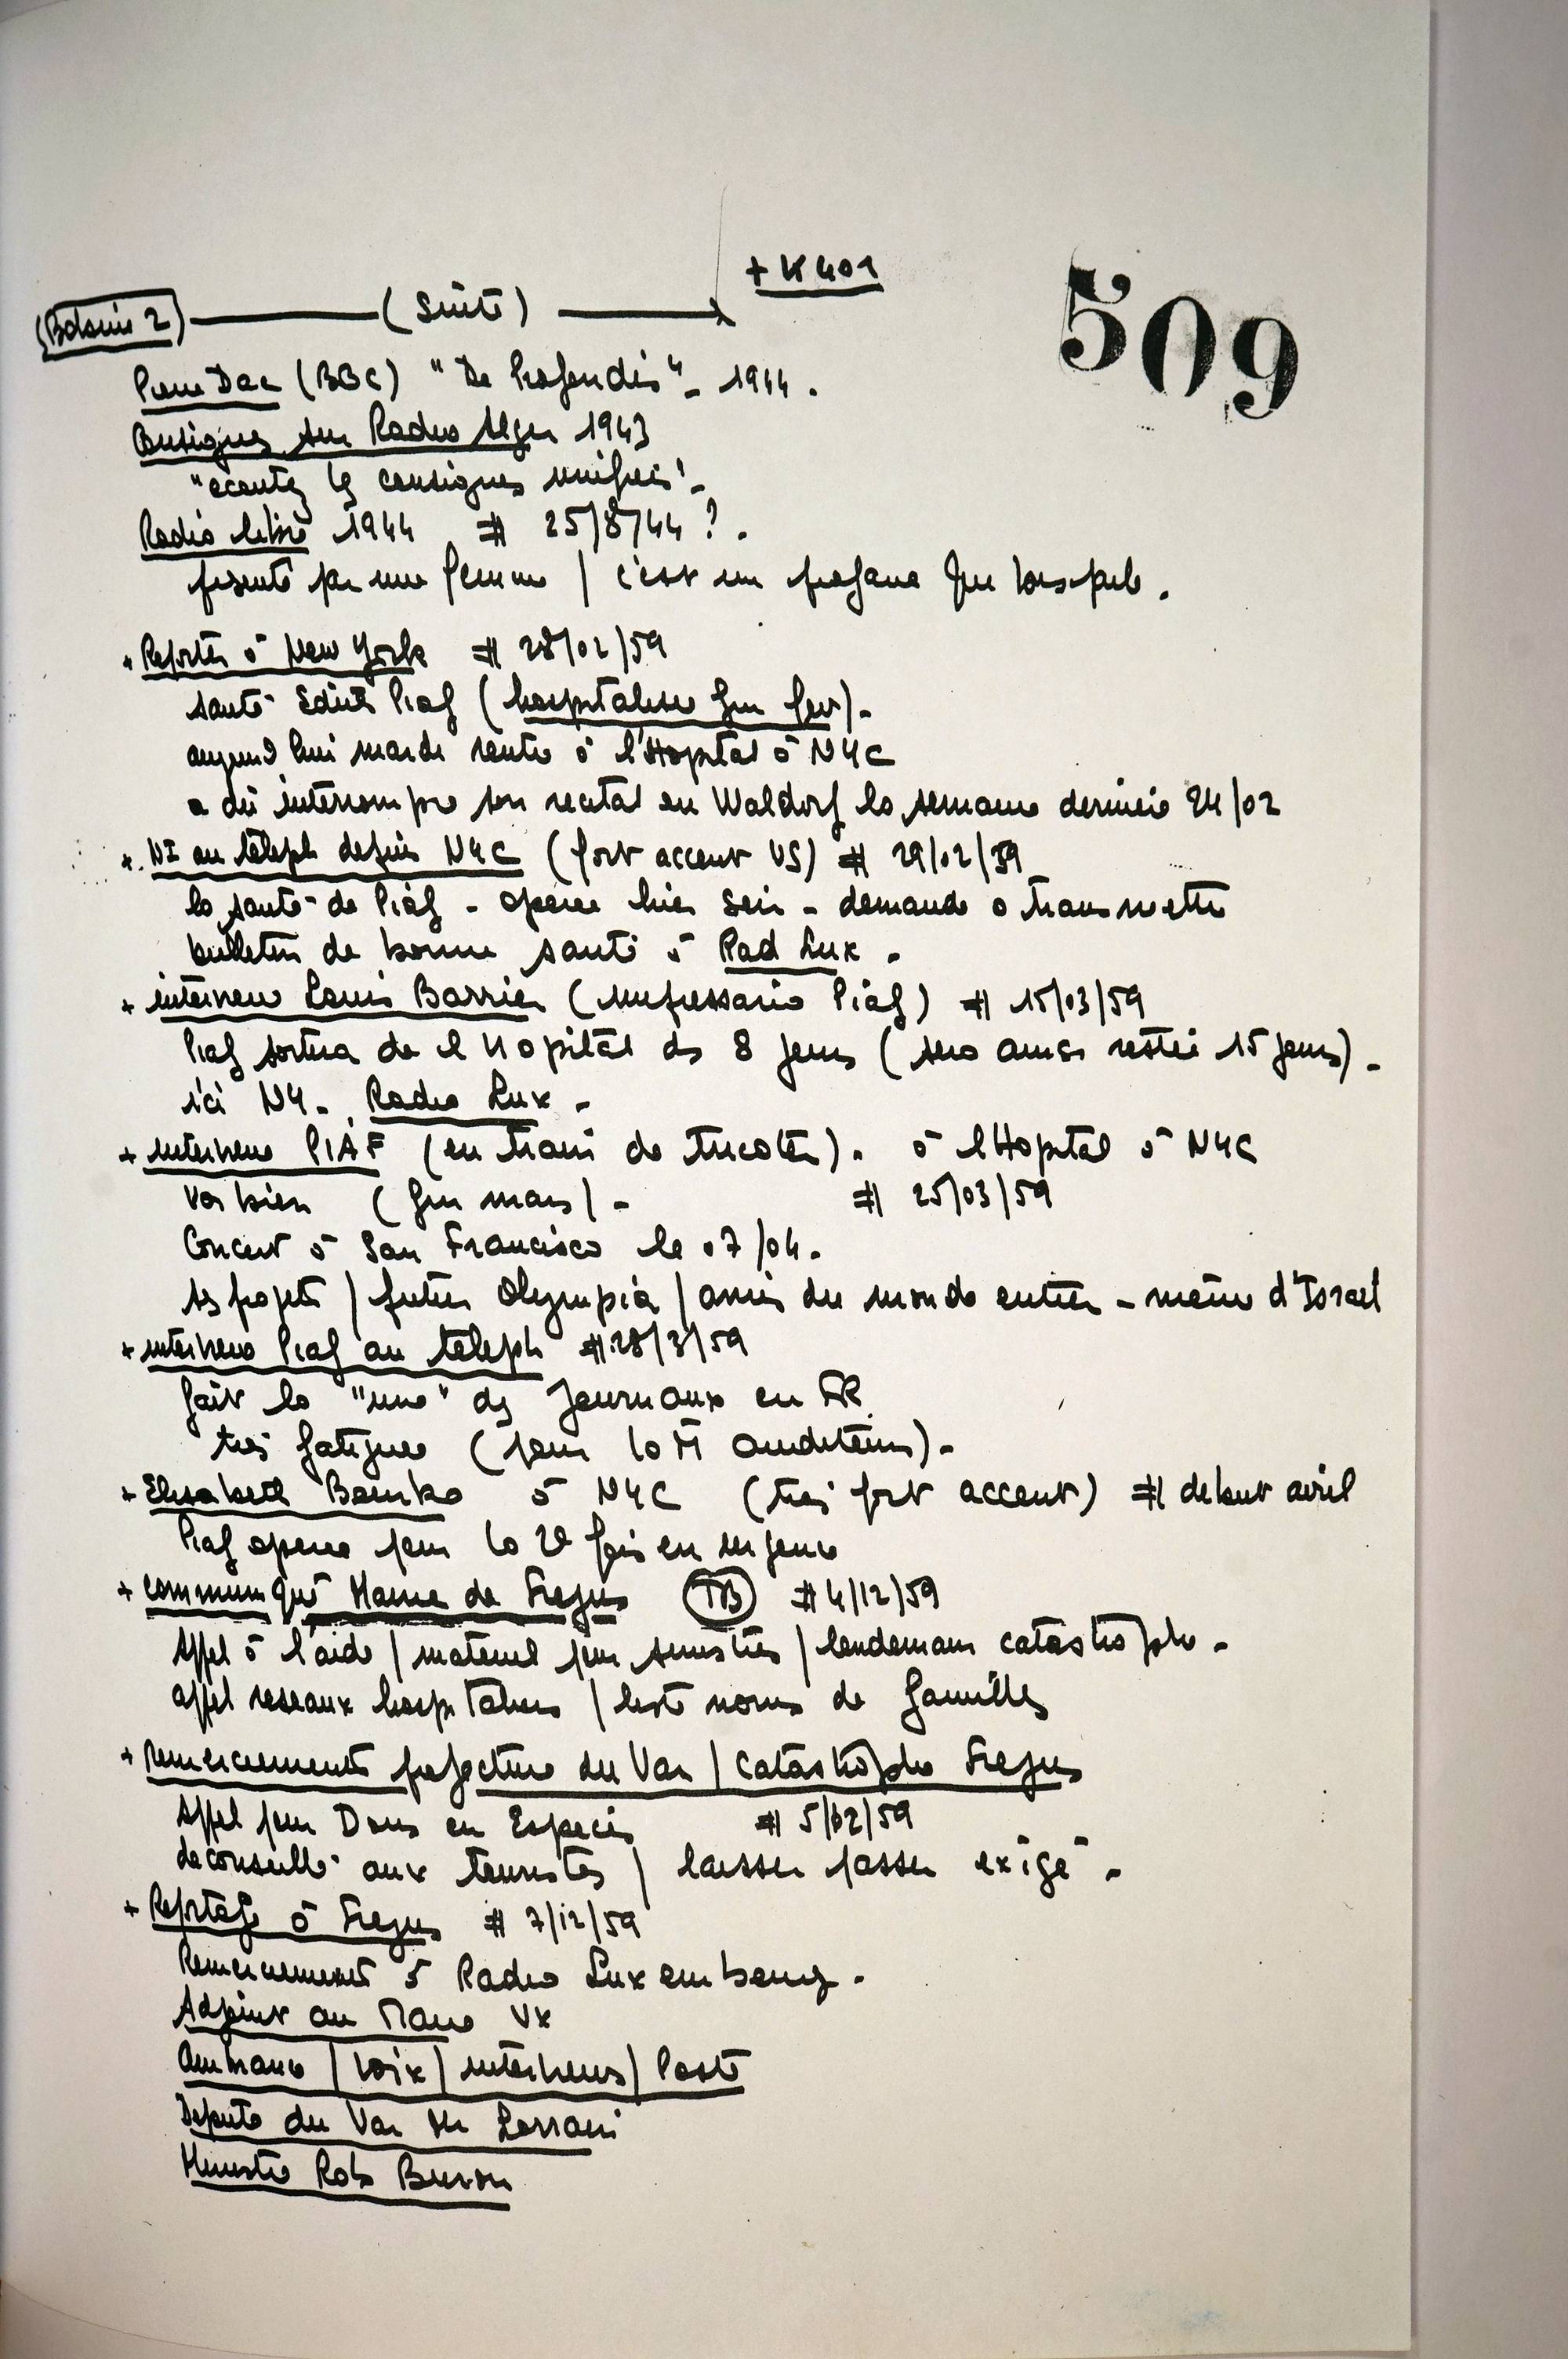 + K401
509
(Bobinis 2) (Suite)
Pierre Dac (BBC) "De Profundis" - 1944.
Consignes sur Radio Alger 1943
"écoutez les consignes unifiées" -
Radio libre 1944 # 25/8/44 ? .
présenté par une femme / c'est un
+ Reporter à New York # 28/02/59
santé Edith Piaf (hospitalisée fin fev) -
aujourd'hui mardi rentre à l'Hopital à NYC
a dû interrompre son recital au Waldorf la semaine dernière 24/02
+ NI au téleph depuis NYC (fort accent US) # 29/02/59
la santé de Piaf - opérée hier soir - demande à transmettre
bulletin de bonne santé à Rad Lux .
+ interview Louis Barrier (impressario Piaf) # 15/03/59
Piaf sortira de l'Hopital ds 8 jours (sera ainsi restée 15 jours) -
ici NY - Radio Lux -
+ interview PIAF (en train de tricoter) . à l'Hopital à NYC
va bien (fin mars) - # 25/03/59
Concert à San Francisco le 07/04 -
ses projets / futur Olympia / amis du monde entier - même d'Israel
+ interview Piaf au téleph # 28/3/59
fait la "une" des journaux en FR
très fatiguée (pour 10 M auditeurs) -
+ Elisabeth à NYC (très fort accent) # debut avril
Piaf opérée pour la 2e fois en urgence
+ communiqué Mairie de Frejus (TB) # 4/12/59
Appel à l'aide / materiel pour sinistrés / lendemain catastrophe -
appel reseaux hospitaliers / liste noms de familles
+ Remerciements prefecture du Var / catastrophe Frejus
Appel pour Dons en Especes # 5/12/59
deconseillé aux touristes / laisser passer exigé -
+ Reportage à Frejus # 7/12/59
Remerciements à Radio Luxembourg -
Adjoint au Maire Vx
Ambiance / Voix / interviews / Poste
Député du Var Mr
Ministre Rob Buron